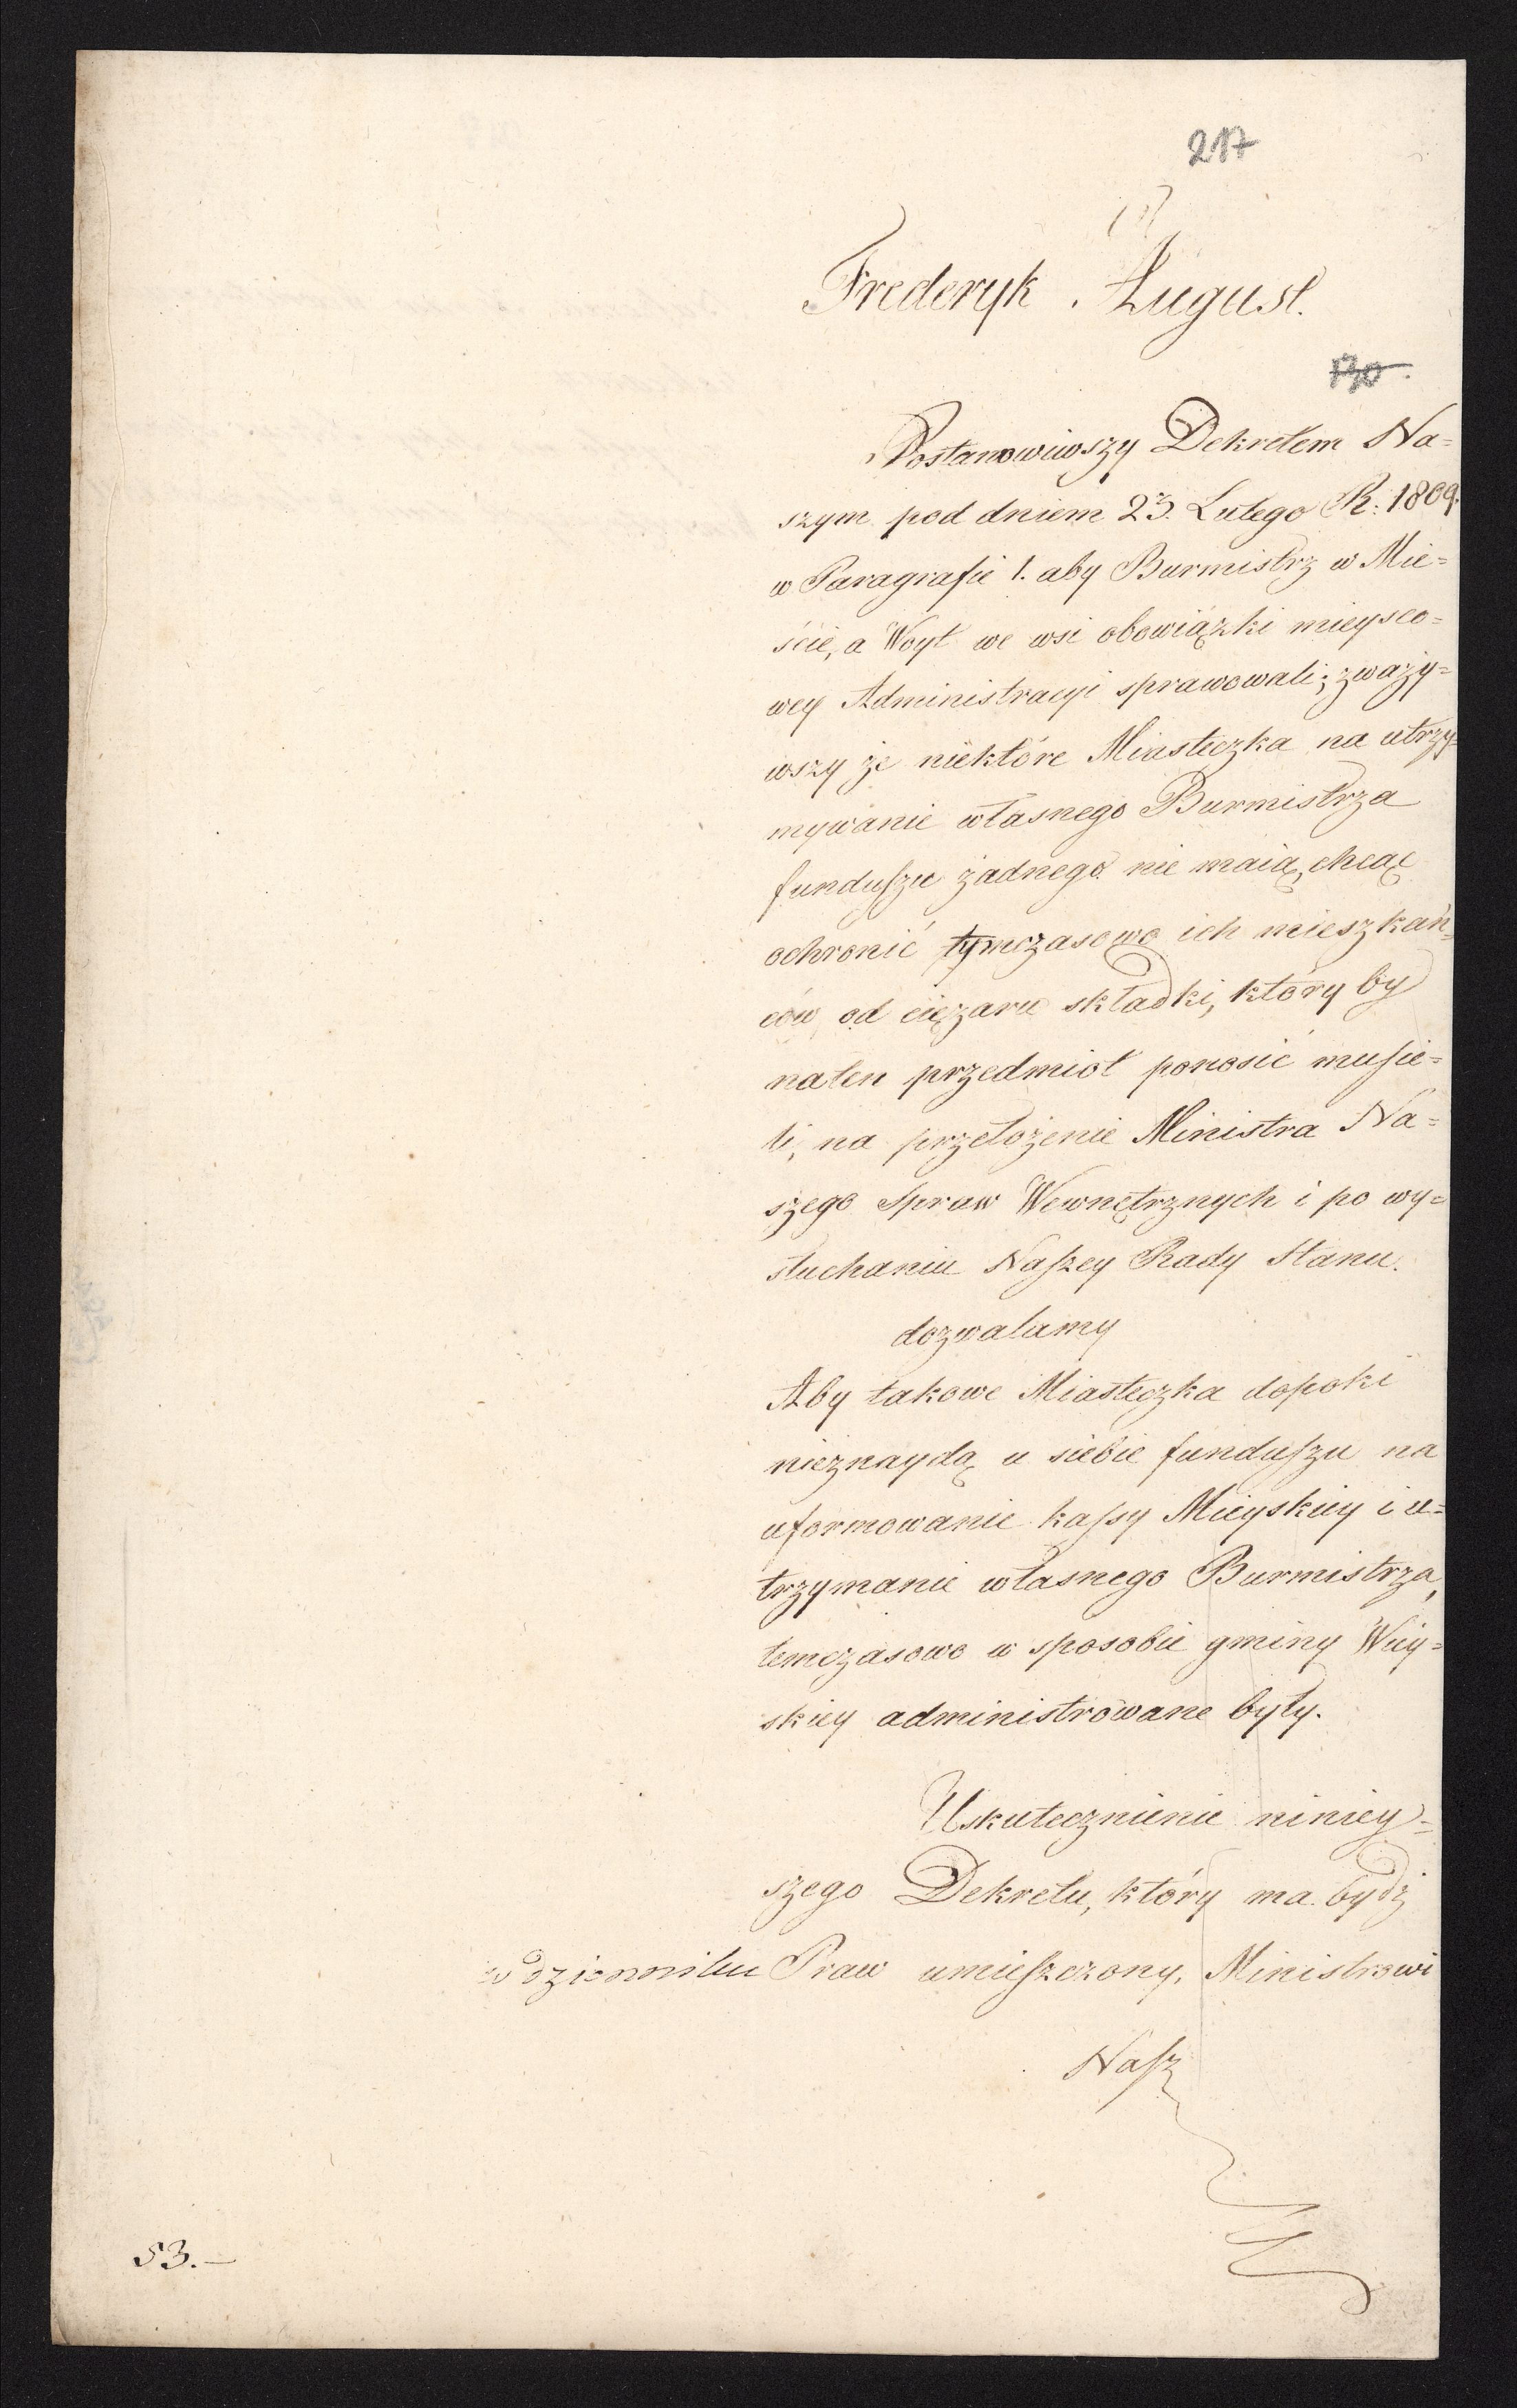 217
Frederyk August.
130.
Postanowiwszy Dekretem Na=
szym pod dniem 23. Lutego R: 1809.
w Paragrafie 1. aby Burmistrz w Mie=
ście, a Woyt we wsi obowiązki mieysco=
wey Administracyi sprawowali; zważy=
wszy że niektóre Miasteczka na utrzy=
mywanie własnego Burmistrza
funduszu żadnego nie maią, chcąc
ochronić tymczasowo ich mieszkań=
ców od ciężaru składki, który by
na ten przedmiot ponosić musie=
li, na przełożenie Ministra Na=
szego Spraw Wewnętrznych i po wy=
słuchaniu Naszey Rady Stanu.
dozwalamy
Aby takowe Miasteczka dopoki
nieznaydą u siebie funduszu na
uformowanie kassy Mieyskiey i u=
trzymanie własnego Burmistrza,
temczasowo w sposobie gminy Wiey=
skiey administrowane były.
Uskutecznienie niniey=
szego Dekretu, który ma bydź
w Dzienniku Praw umieszczony, Ministrowi
Nasz
53.–